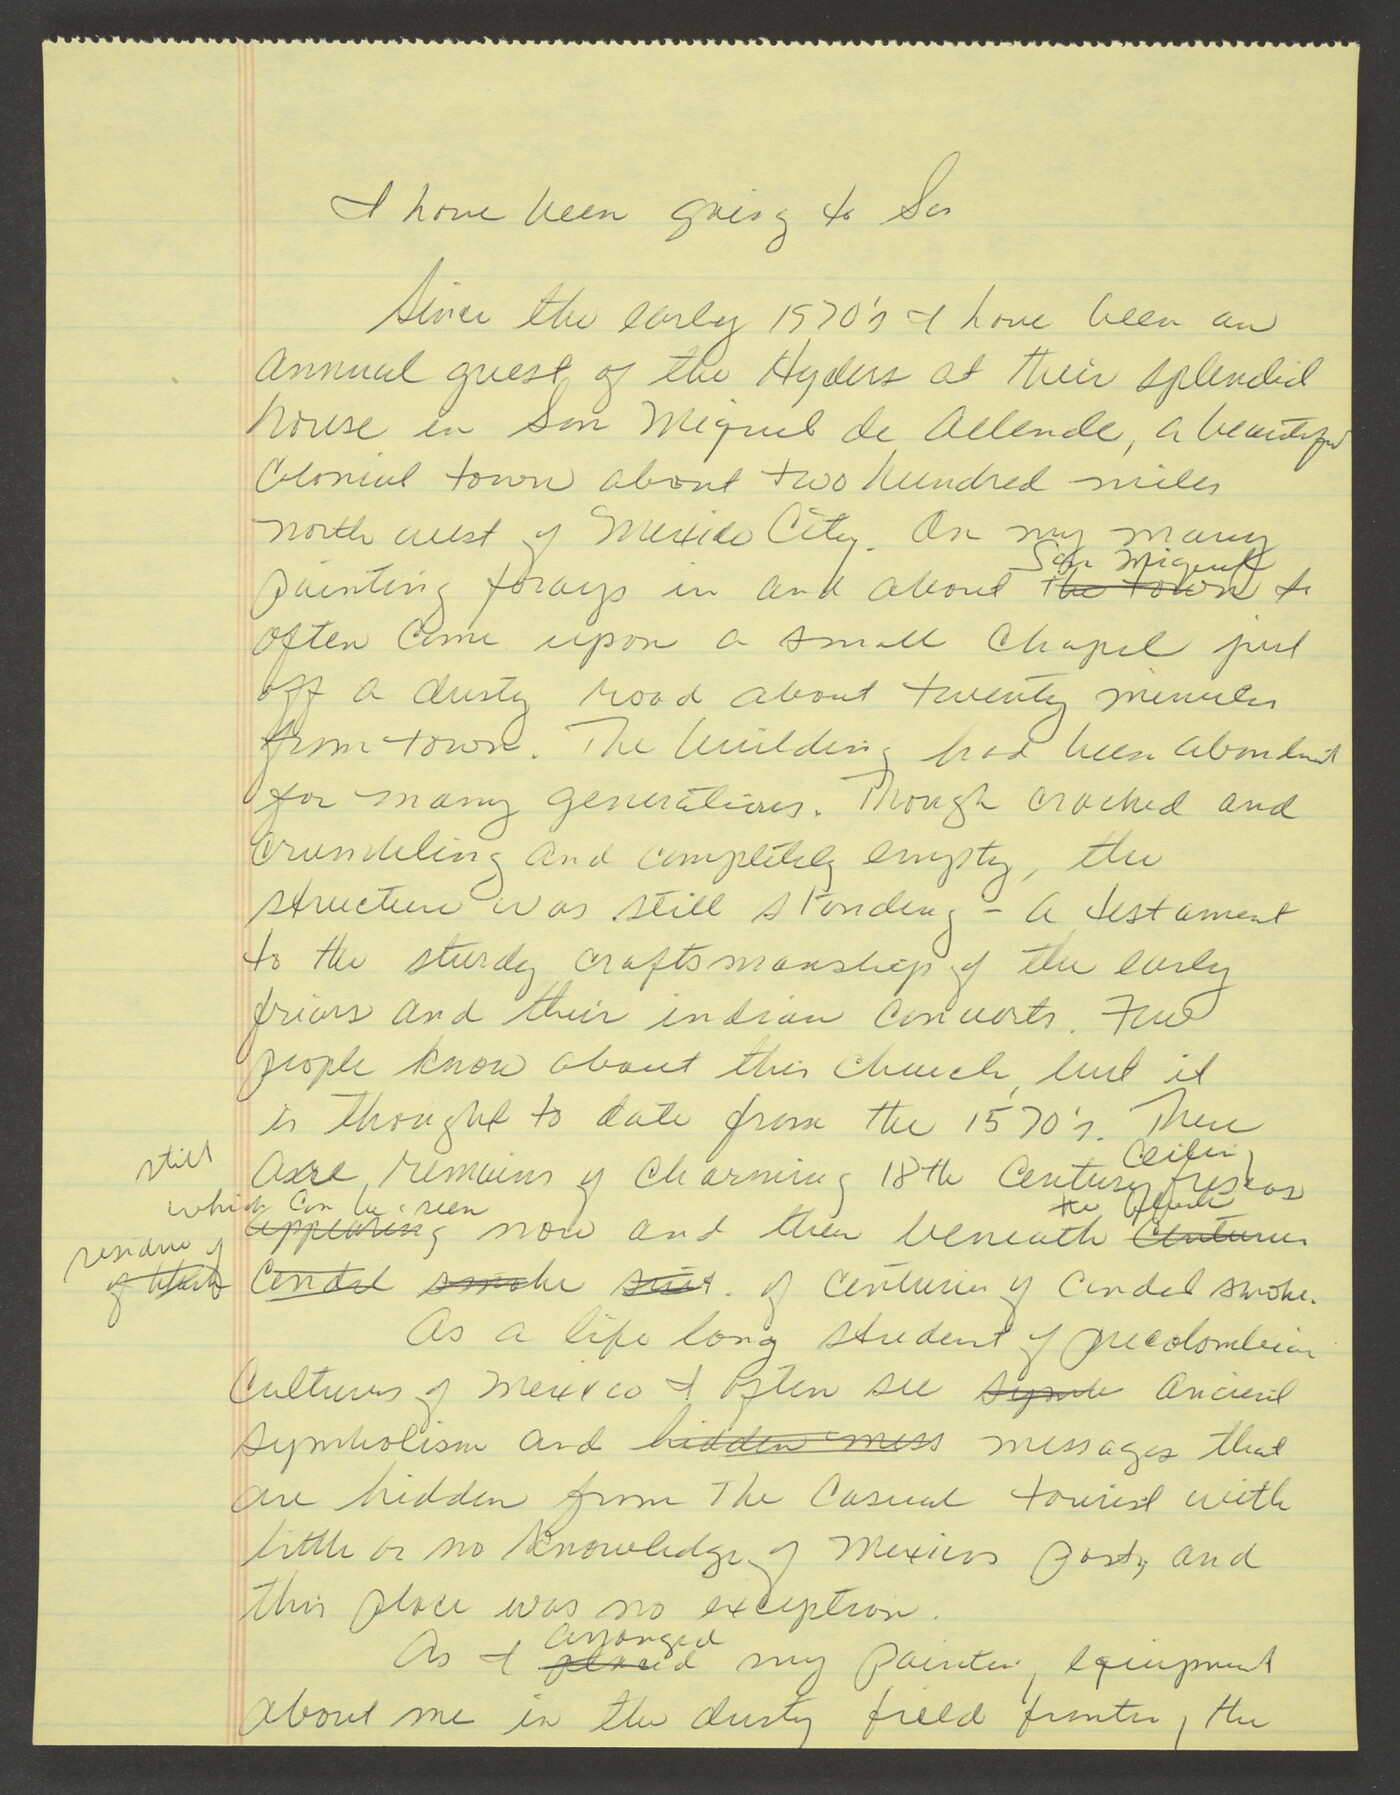 I have been going to San
Since the early 1970's I have been an
annual guest of the Hyders at their splendid
house in San Miguel de Allende, a beautiful
Colonial town about two hundred miles
north west of Mexico City. On my many
San Miguel
painting forays in and about the town I
often came upon a small chapel just
off a dusty road about twenty minutes
from town. The building had been abondund
for many generations. Though cracked and
crumbling and completely empty, the
structure was still standing - a testament
to the sturdy craftsmanship of the early
friars and their indian converts. Few
people know about this church, but it
is thought to date from the 1570's. There
still
ceiling
are remains of charming 18th Century frescos
which can be seen
the
appearing now and then beneath Centuries
residue of
of candel smoke soot. of centuries of candel smoke.
As a life long student of precolombian
Cultures of Mexico I often see symb ancient
symbolism and hidden mess messages that
are hidden from The Casual tourist with
little or no knowledge of Mexicos past, and
this place was no exception.
arranged
As I placed my painting equipment
about me in the dusty field fronting the